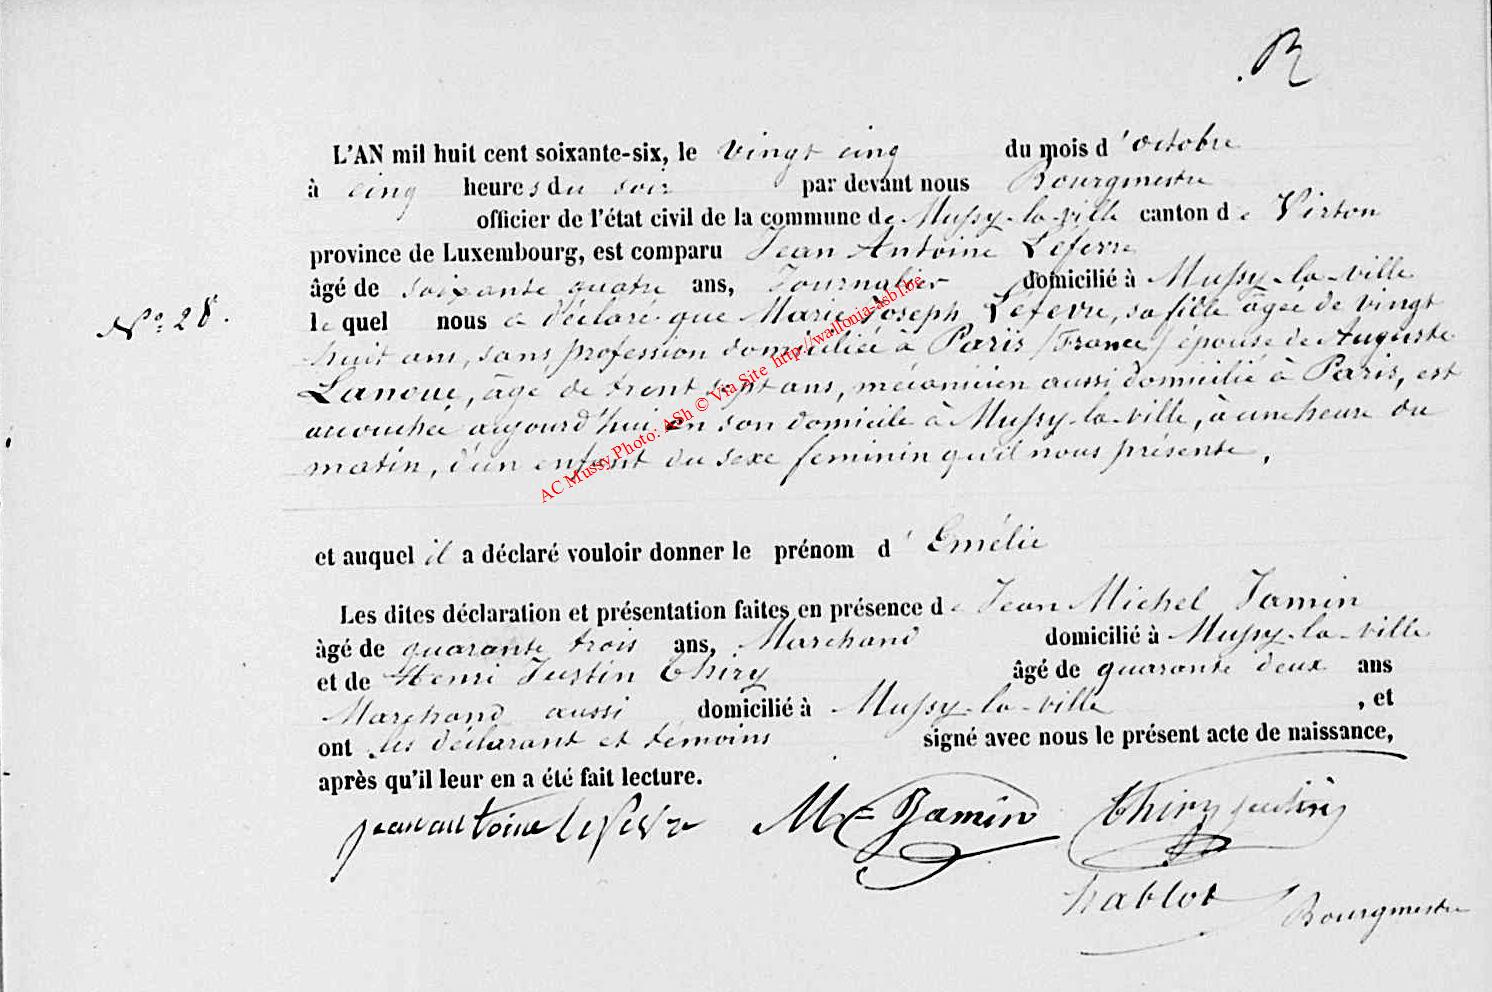 R
L'AN mil huit cent soixante-six, le vingt cinq du mois d'octobre
à cinq heures du soir par devant nous Bourgmestre
officier de l'état civil de la commune de Mussy-la-ville canton de Virton
province de Luxembourg, est comparu Jean Antoine Lefevre
âgé de soixante quatre ans, Journalier domicilié à Mussy-la-ville
N° 28. le quel nous a déclaré que Marie Joseph Léfevre, sa fille âgée de vingt
huit ans, sans profession domiciliée à Paris (France) épouse de Auguste
Lanoue, âgé de trent sept ans, mécanicien aussi domicilié à Paris, est
accouchée aujourd'hui en son domicile à Mussy-la-ville, à une heure du
matin, d'un enfant du sexe feminin qu'il nous présente,
et auquel il a déclaré vouloir donner le prénom d'Emélie
Les dites déclaration et présentation faites en présence de Jean Michel Jamin
âgé de quarante trois ans, Marchand domicilié à Mussy-la-ville
et de Henri Justin Thiry âgé de quarante deux ans
Marchand aussi domicilié à Mussy-la-ville, et
ont les déclarant et témoins signé avec nous le présent acte de naissance,
après qu'il leur en a été fait lecture.
jean antoine lefevre M Jamin Thiry justin
hablot Bourgmestre
AC Mussy Photo: ASh © Via Site http://wallonia-asbl.be